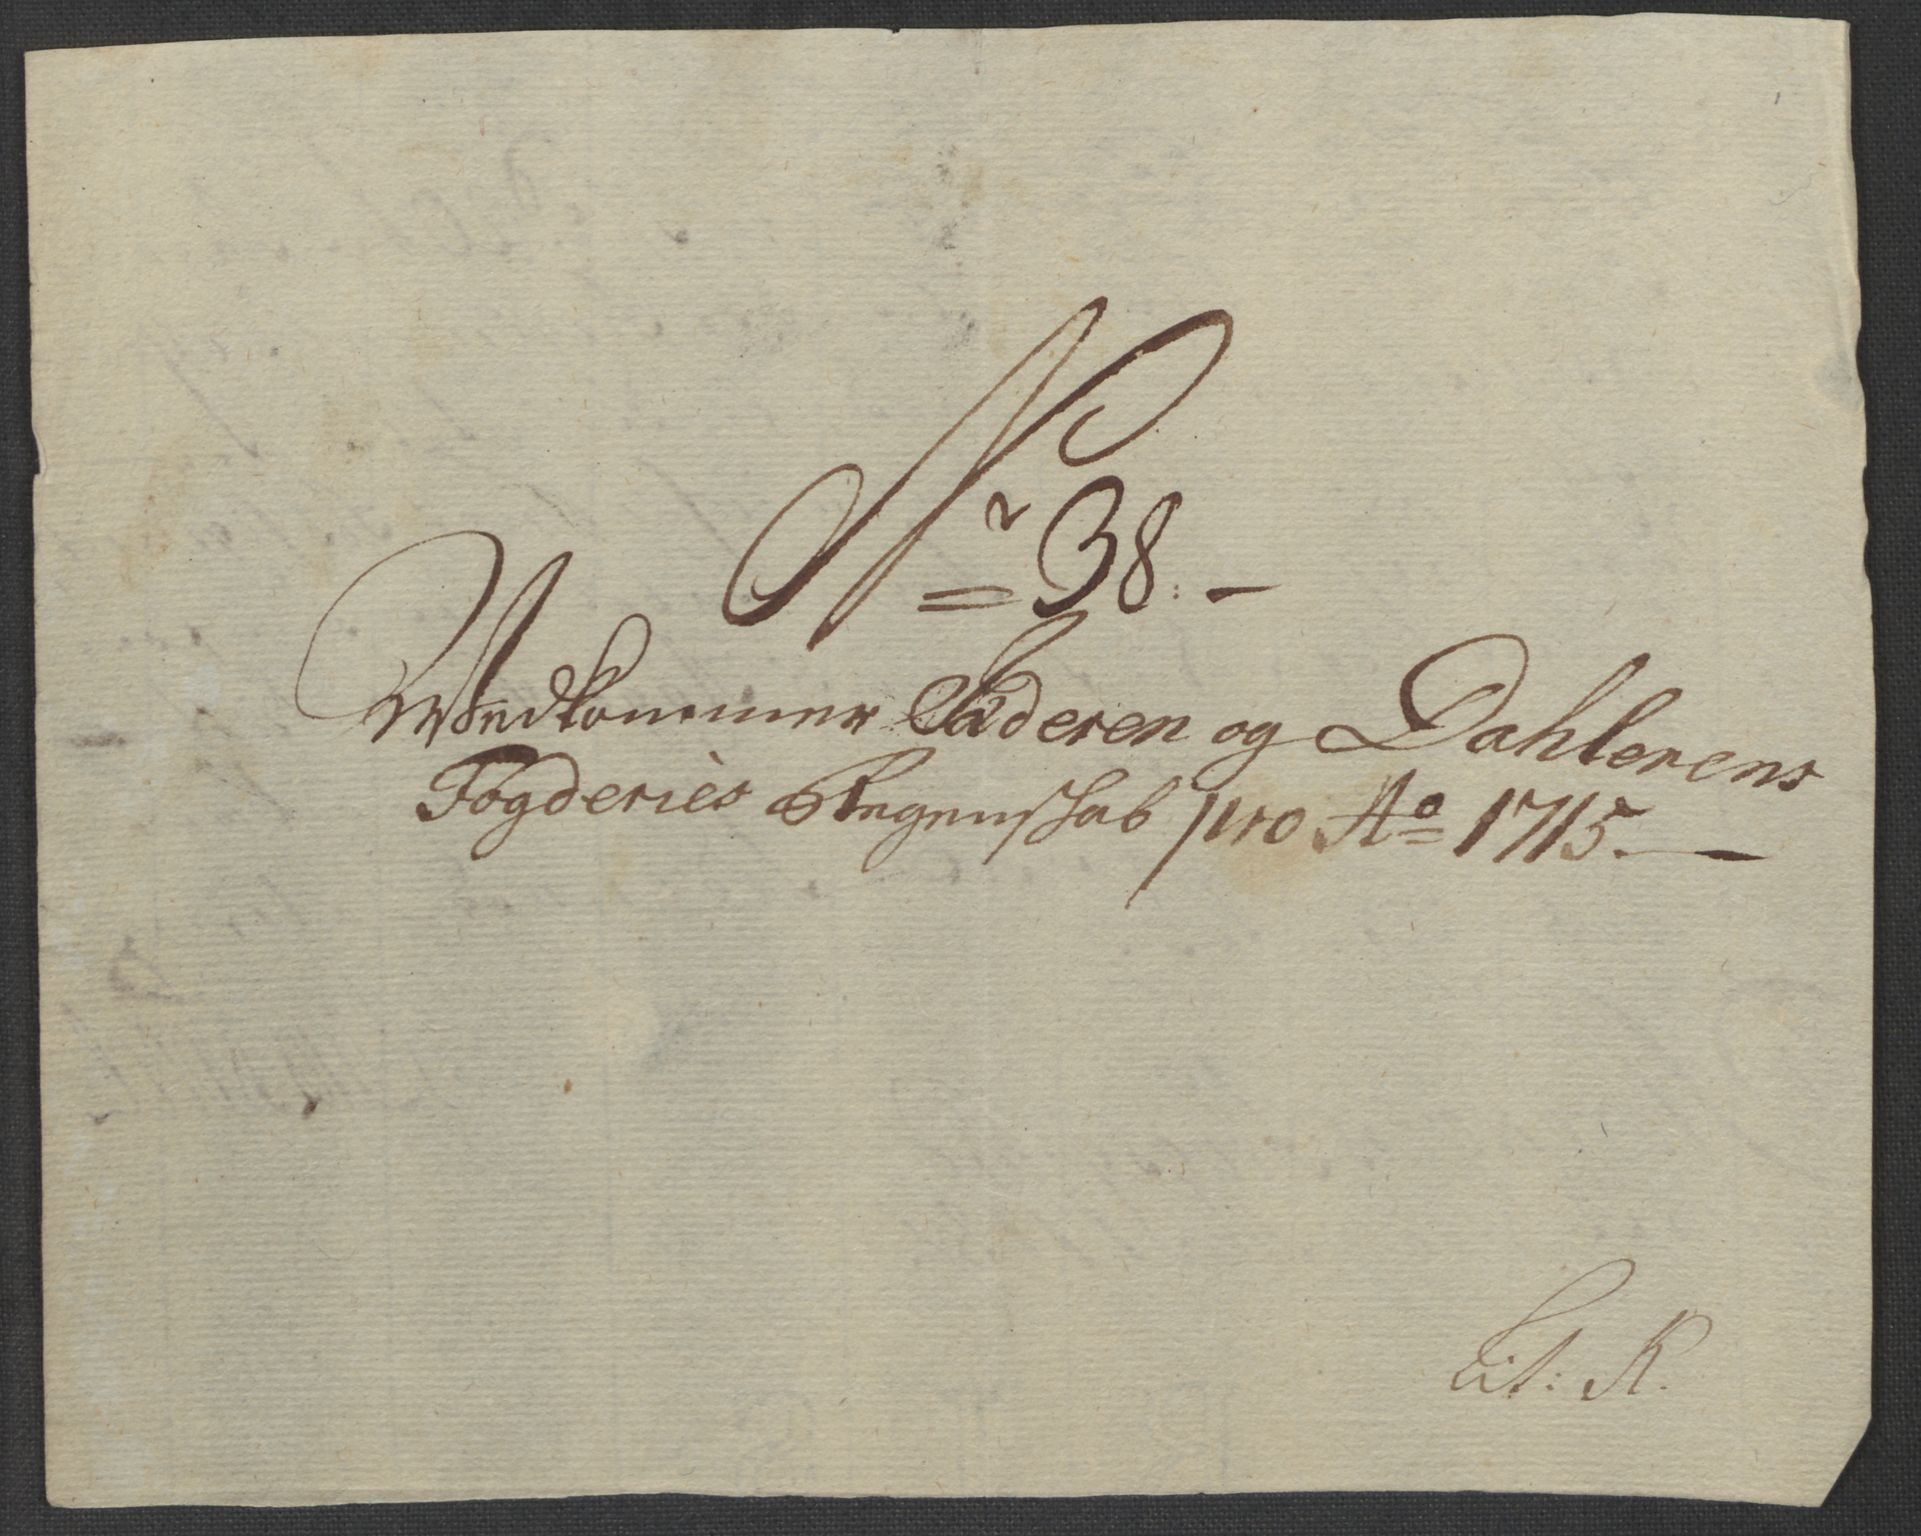 Nr 38. –
Wedkommer Jæderen og Dahlerens
Fogderies Regenskab pro Ao 1715. —
Lit: R.